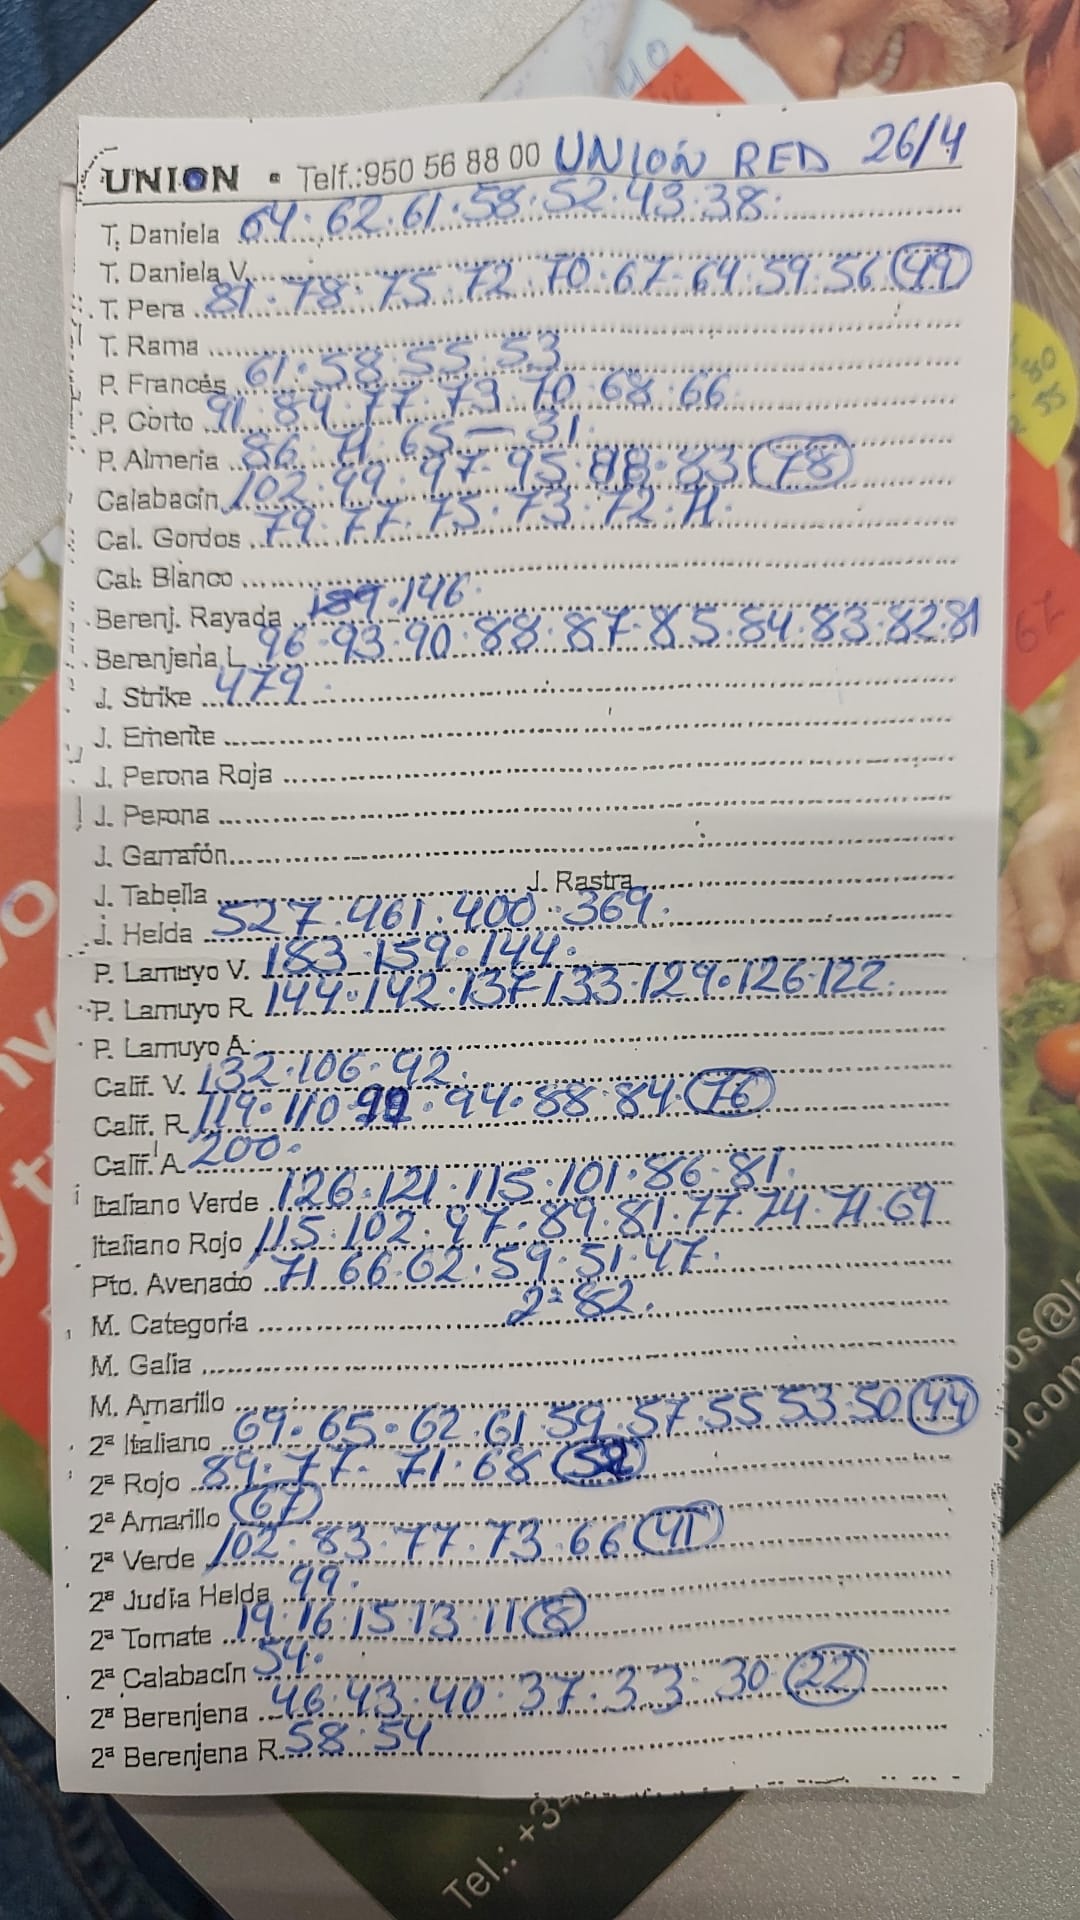 UNION • Telf.:950 56 88 00 UNIÓN RED 26/4
T. Daniela 64. 62. 61. 58. 52. 43. 38.
T. Daniela V.
T. Pera 81. 78. 75. 72. 70. 67. 64. 59. 56 49
T. Rama
P. Francés 61. 58. 55. 53
P. Corto 91. 84. 77. 73. 70. 68. 66
P. Almeria 86. 71. 65 — 31.
Calabacín 102. 99. 97. 95. 88. 83 78
Cal. Gordos 79. 77. 75. 73. 72. 71.
Cal. Blanco
Berenj. Rayada 146.
Berenjena L. 96. 93. 90. 88. 87. 85. 84. 83. 82. 81
J. Strike 479.
J. Emerite
J. Perona Roja
J. Perona
J. Garrafón
J. Tabella J. Rastra
J. Helda 527. 461. 400. 369.
P. Lamuyo V. 183. 159. 144.
P. Lamuyo R. 144. 142. 137 133. 129. 126. 122.
P. Lamuyo A.
Calif. V. 132. 106. 92.
Calif. R. 119. 110 94. 88. 84. 76
Calif. A. 200.
Italiano Verde 126. 121. 115. 101. 86. 81.
Italiano Rojo 115. 102. 97. 89. 81. 77. 74. 71. 69
Pto. Avenado 71 66. 62. 59. 51. 47.
M. Categoria 2ª 82.
M. Galia
M. Amarillo
2ª Italiano 69. 65. 62. 61. 59. 57. 55 53. 50 44
2ª Rojo 89. 77. 71. 68
2ª Amarillo 67
2ª Verde 102. 83. 77. 73. 66
2ª Judia Helda 99.
2ª Tomate 19. 16. 15. 13. 11 8
2ª Calabacín 54.
2ª Berenjena 46. 43. 40. 37. 33. 30. 22
2ª Berenjena R. 58. 54
Tel.: +34